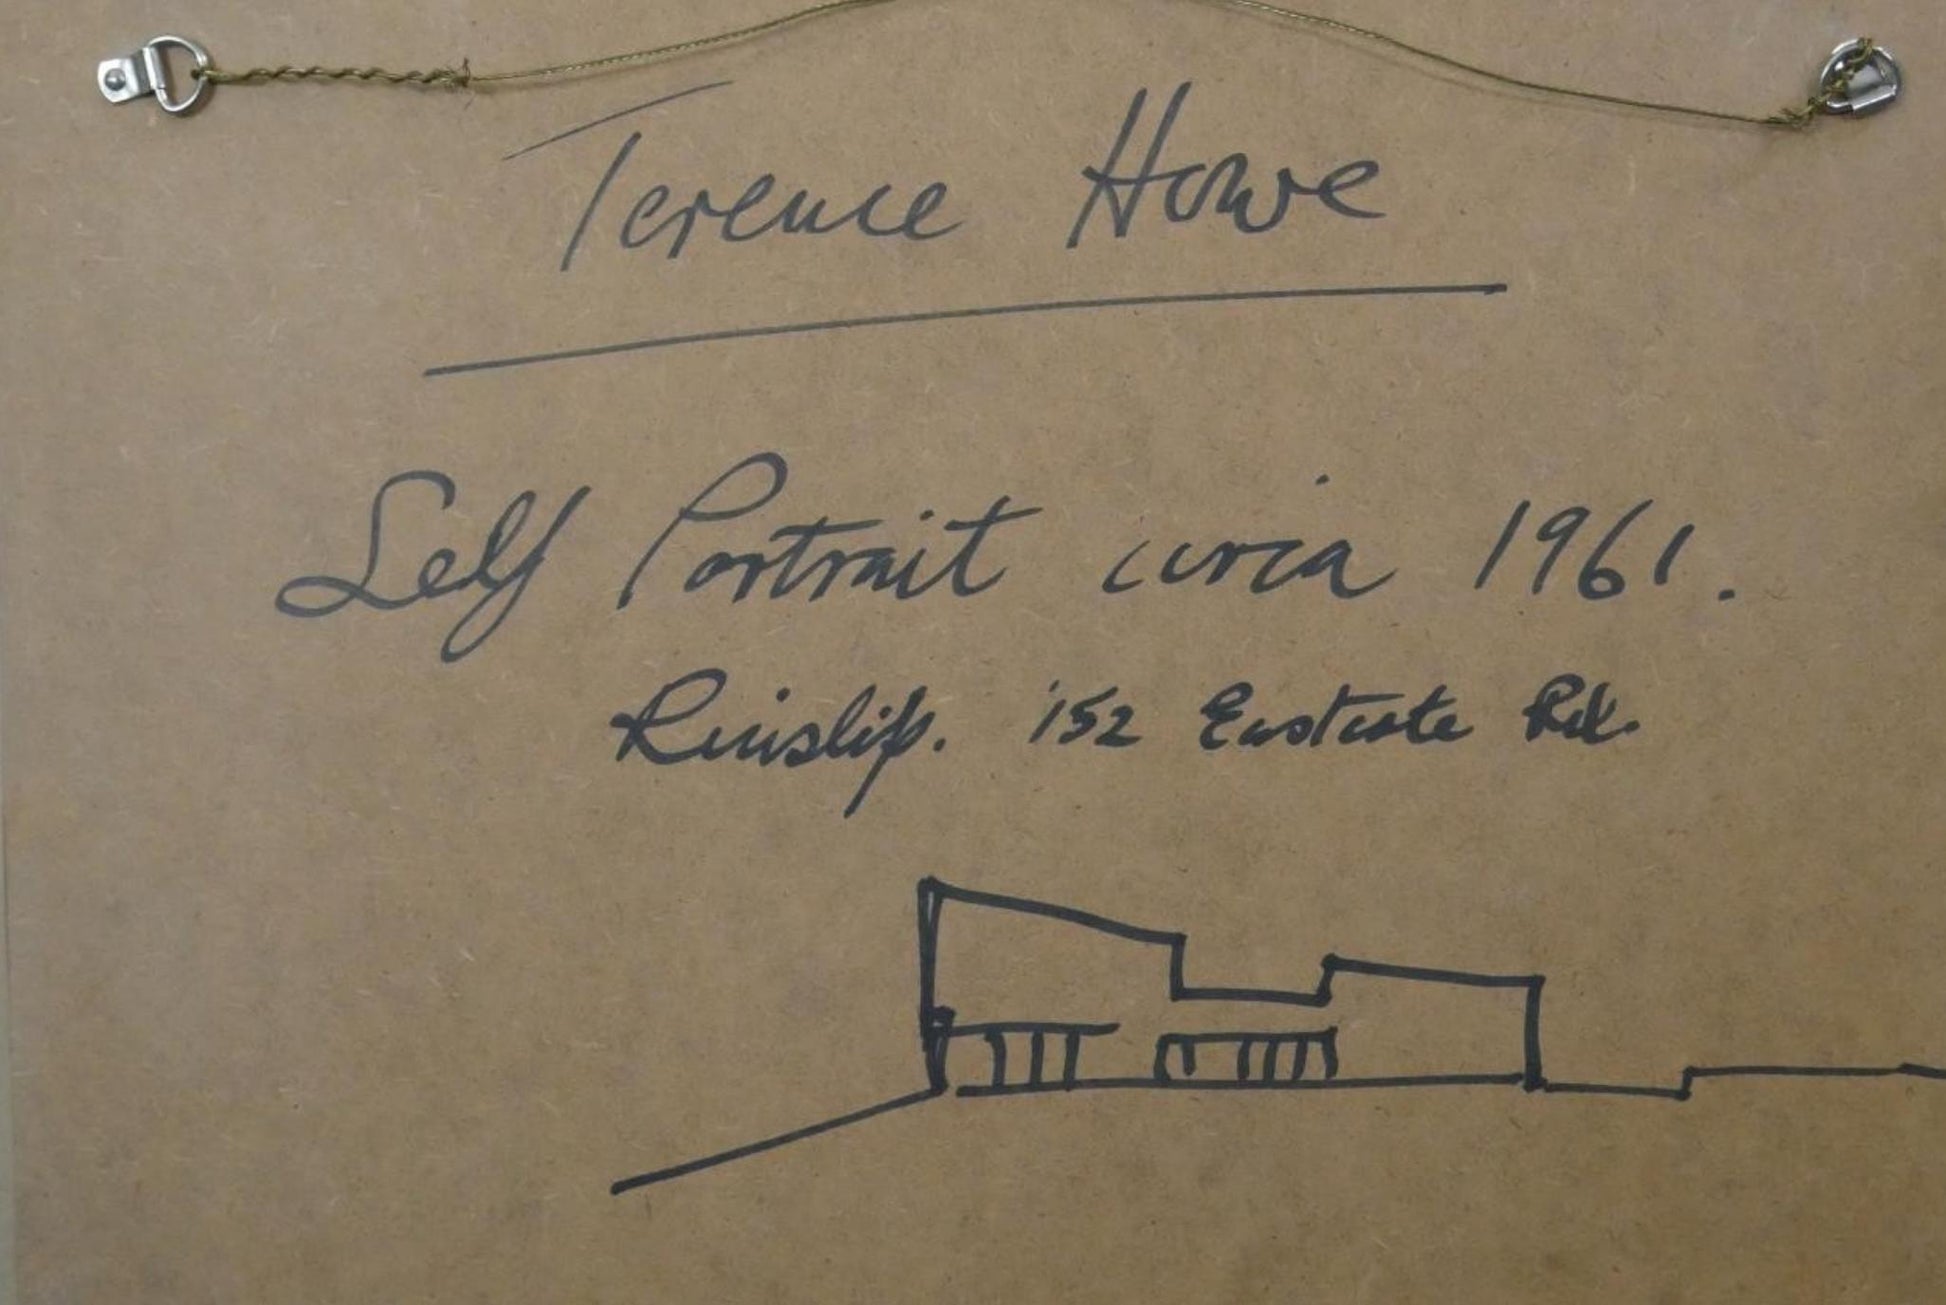 Terence Howe
Self Portrait circa 1961.
Ruislip. 152 Eastcote Rd.